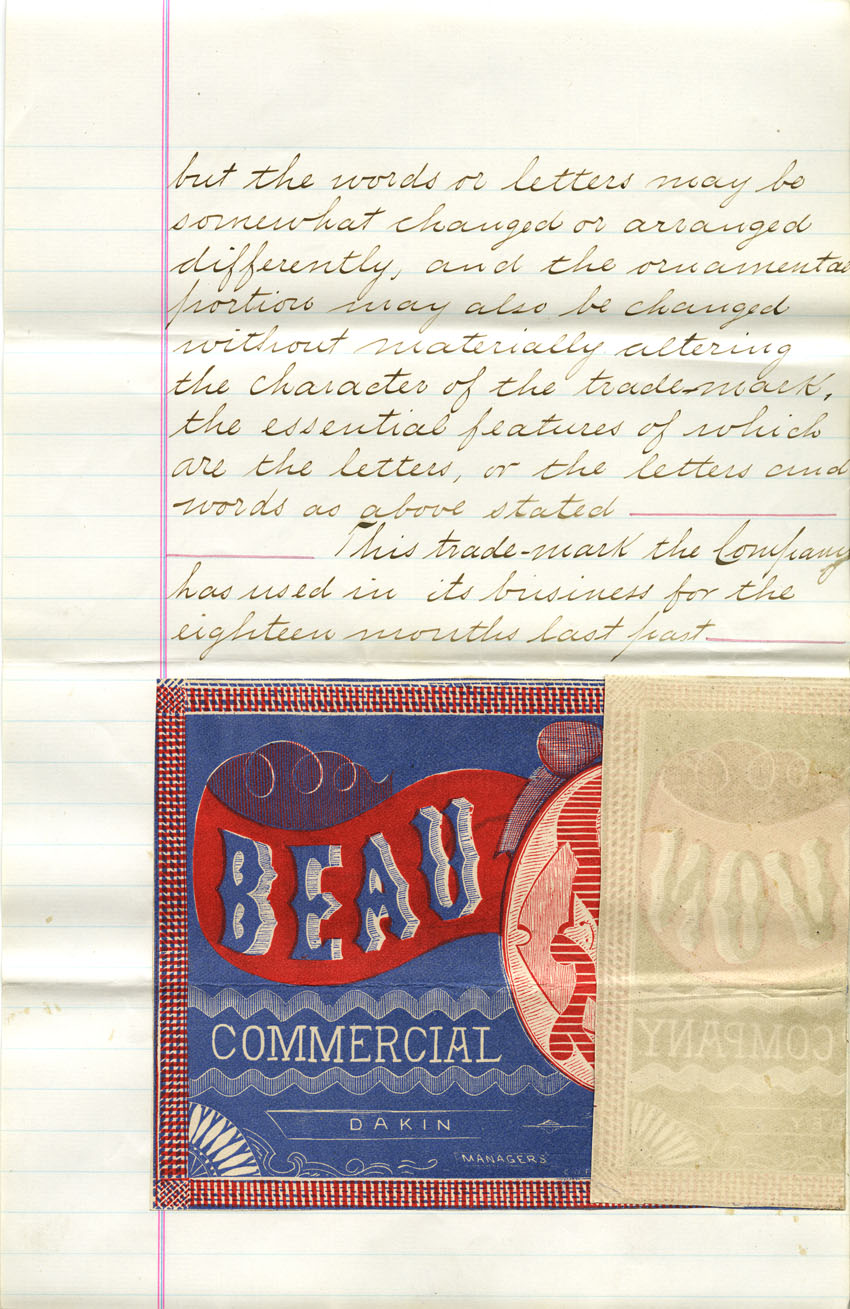 but the words or letters may be
somewhat changed or arranged
differently, and the ornamental
portion may also be changed
without materially altering
the character of the trade-mark,
the essential features of which
are the letters, or the letters and
words as above stated
This trade-mark the Company
has used in its business for the
eighteen months last past
BEAU
COMMERCIAL
COMPANY
DAKIN
"MANAGERS"